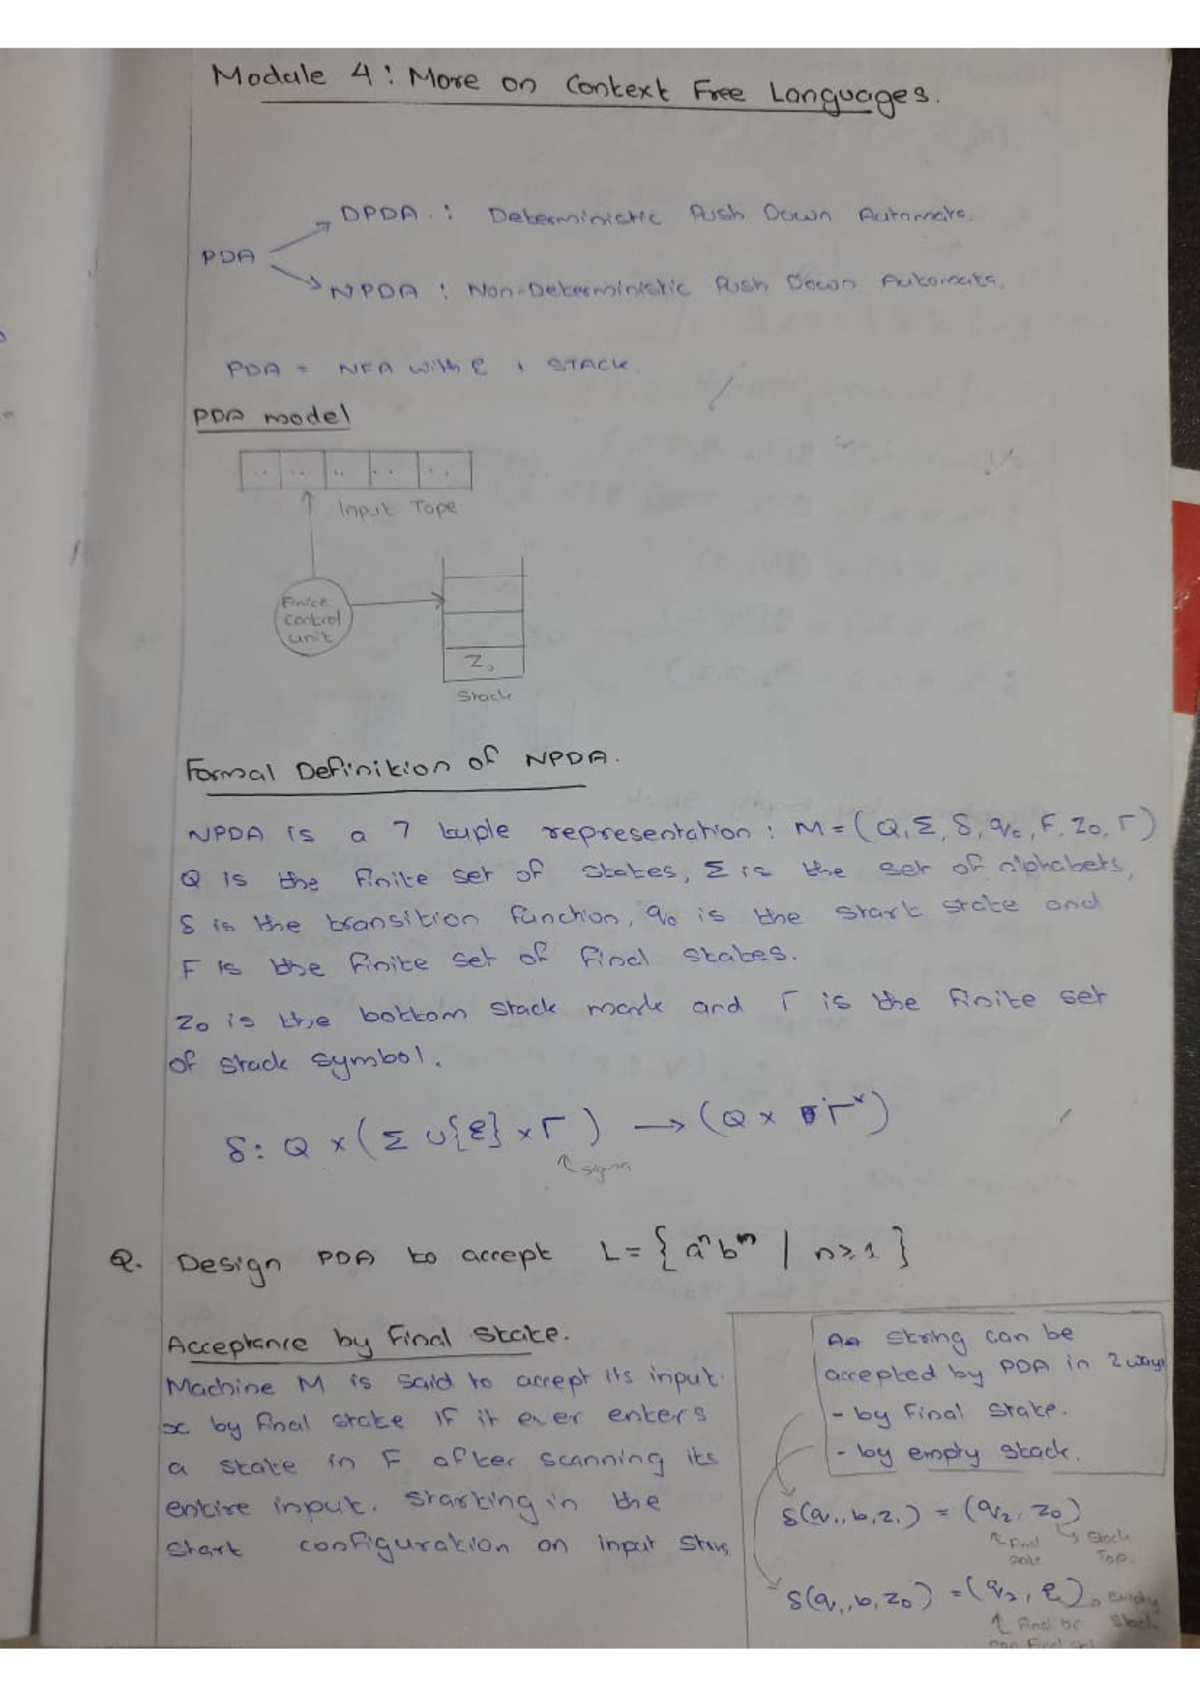 Module 4 : More on Context Free Languages.
DPDA. : Deterministic Push Down Automata.
PDA
NPDA : Non-Deterministic Push Down Automata.
PDA = NFA with ε + STACK.
PDA model
Input Tape
Finite
control
unit
Z₀
Stack
Formal Definition of NPDA.
NPDA is a 7 tuple representation : M = (Q, Σ, δ, q₀, F, Z₀, Γ)
Q is the finite set of states, Σ is the set of alphabets,
δ is the transition function, q₀ is the start state and
F is the finite set of final states.
Z₀ is the bottom stack mark and Γ is the finite set
of stack symbol.
δ: Q × (Σ ∪ {ε} × Γ) → (Q × Γ*)
↑ sigma
Q. Design PDA to accept L = { aⁿ bⁿ | n ≥ 1 }
Acceptance by Final State.
Machine M is said to accept its input
x by final state if it ever enters
a state in F after scanning its
entire input. starting in the
start configuration on input
A string can be
accepted by PDA in 2 ways
- by Final State.
- by empty stack.
δ(q₁, b, z₀) = (q₂, z₀)
↑ Final state
→ Stack Top.
δ(q₁, b, z₀) = (q₂, ε) → empty stack
↑ final or
non final